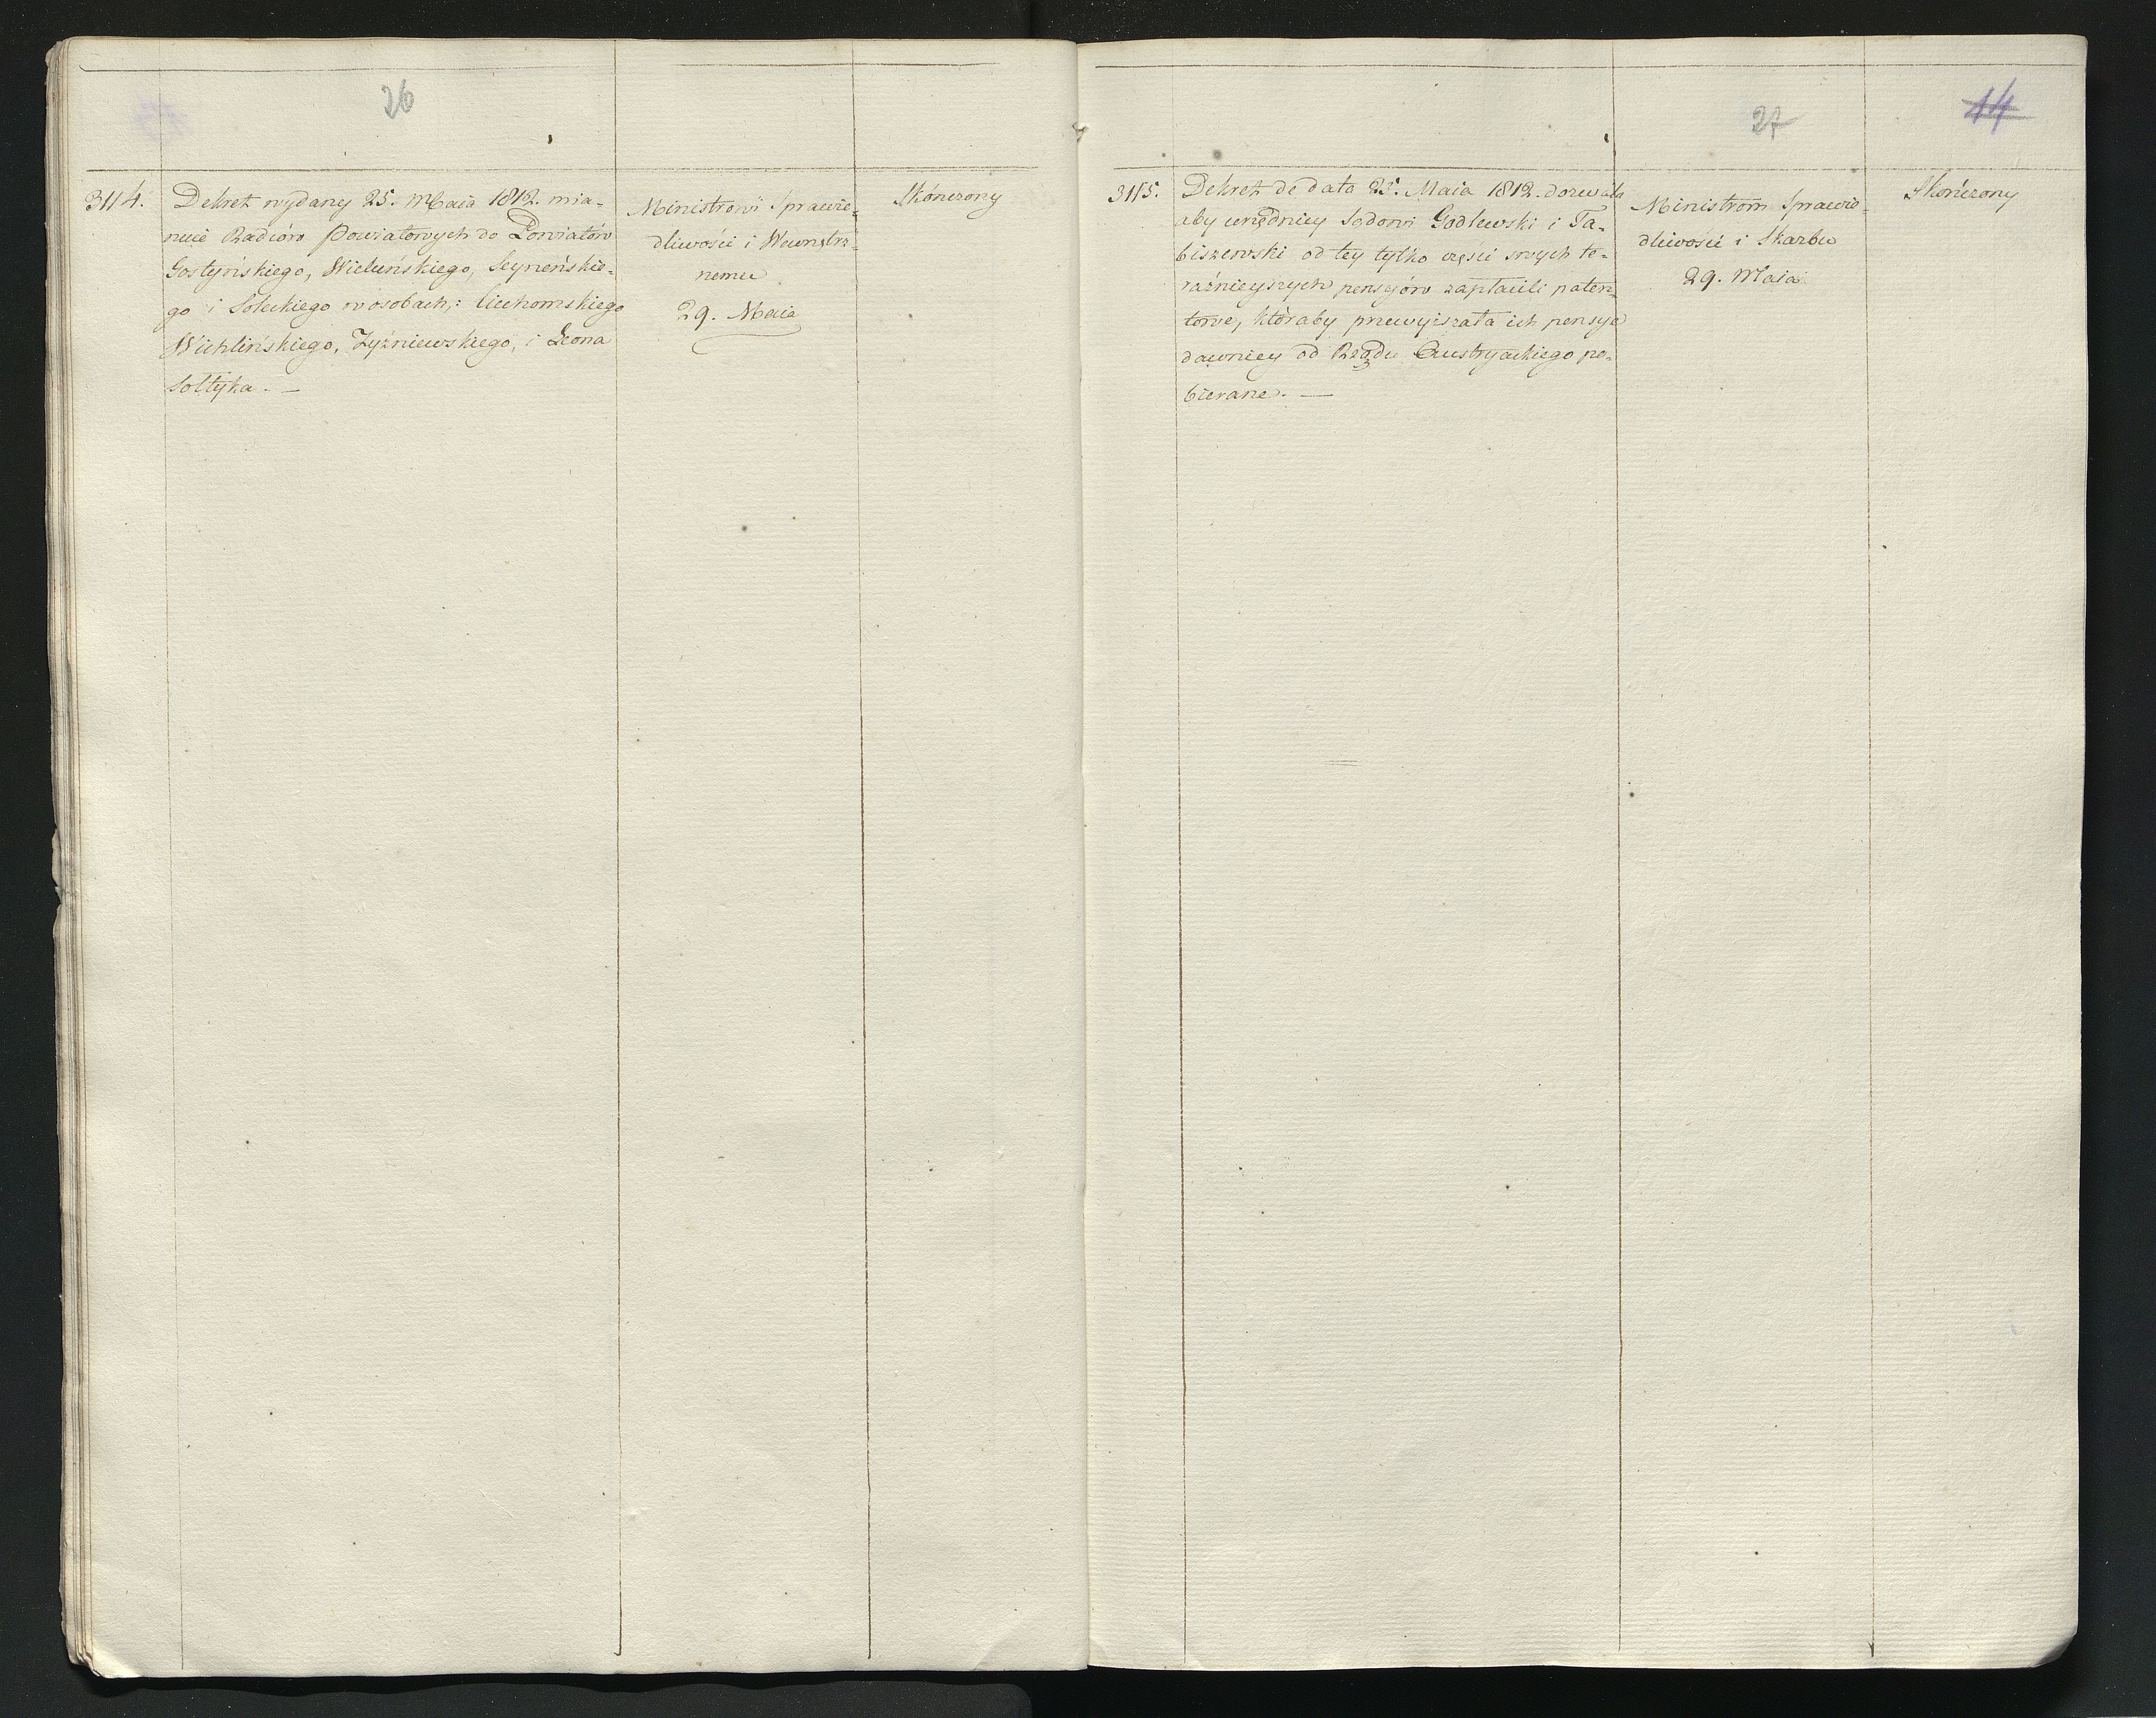 26
3114.
Dekret wydany 25. Maia 1812. mia-
nuie Radców Powiatowych do Powiatów
Gostyńskiego, Wieluńskiego, Seyneńskie-
go i Soleckiego w osobach; Ciechomskiego
Wichlińskiego, Zyźniewskiego, i Leona
Sołtyka. —
Ministrowi Sprawie-
dliwości i Wewnętrz-
nemu
29. Maia
Skończony
27
14
3115.
Dekret de dato 25. Maia 1812. dozwala
aby urzędnicy Sądowi Godlewski i Ta-
biszewski od tey tylko części swych te-
raźnieyszych pensyów zapłacili paten-
towe, któraby przewyiszała ich pensye
dawniey od Rządu Austryackiego po-
bierane. —
Ministrom Sprawie-
dliwości i Skarbu
29. Maia
Skończony